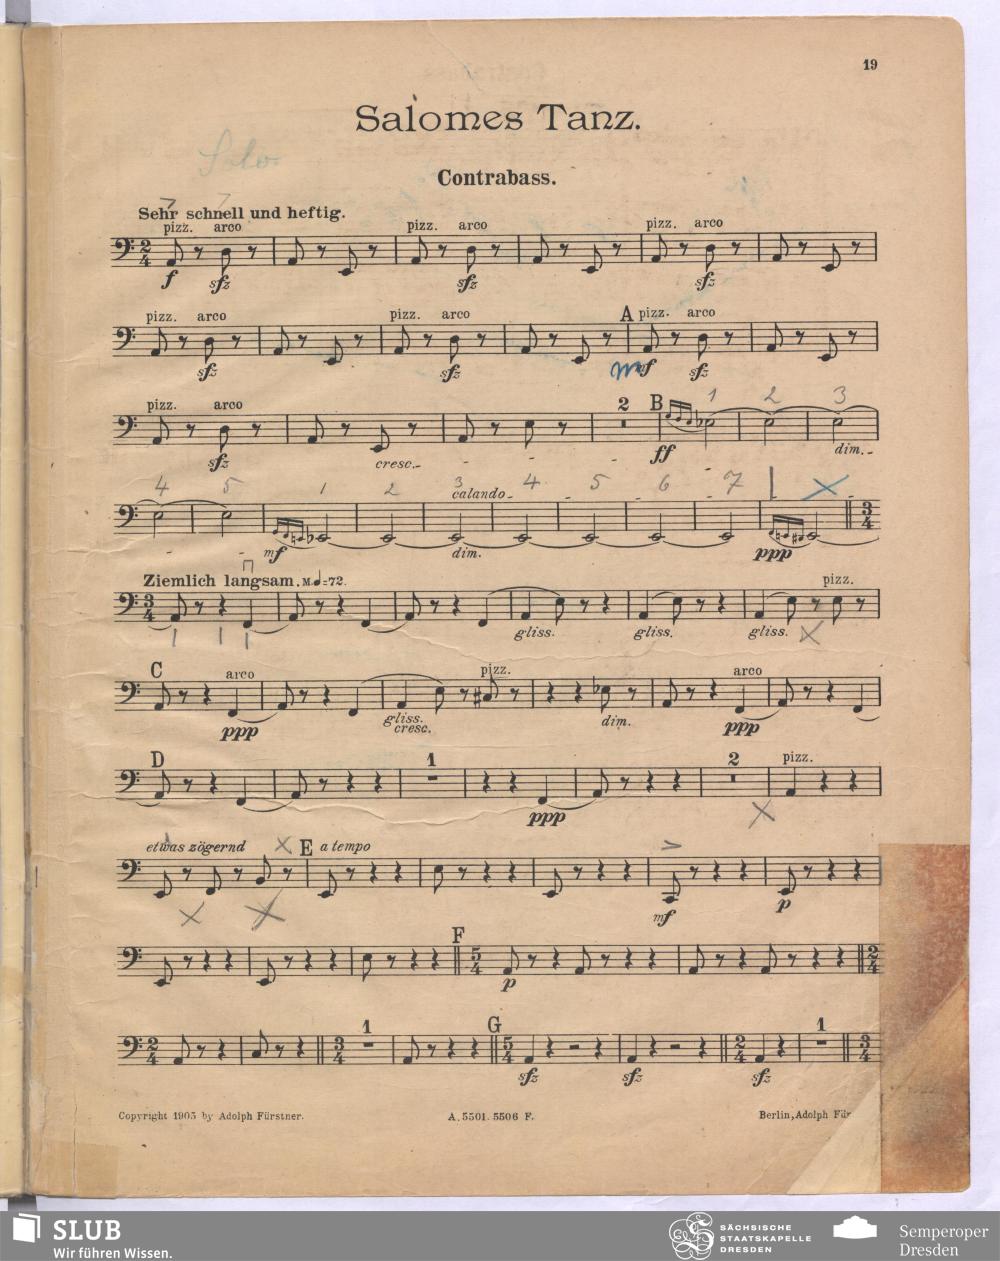 19
Salomes Tanz.
Solo
Contrabass.
Sehr schnell und heftig.
pizz. arco pizz. arco pizz. arco
f sfz sfz sfz
pizz. arco pizz. arco A pizz. arco
sfz sfz mf sfz
pizz. arco 2 B 1 2 3
sfz cresc. ff dim.
4 5 1 2 3 4 5 6 7
calando
mf dim. ppp
Ziemlich langsam. M. = 72.
pizz.
gliss. gliss. gliss.
C arco pizz. arco
ppp gliss. cresc. dim. ppp
D 1 2 pizz.
ppp
etwas zögernd E a tempo
mf p
F
p
1 G 1
sfz sfz sfz
Copyright 1905 by Adolph Fürstner. A. 5501. 5506 F. Berlin, Adolph Für
SLUB
Wir führen Wissen.
SÄCHSISCHE
STAATSKAPELLE
DRESDEN
Semperoper
Dresden